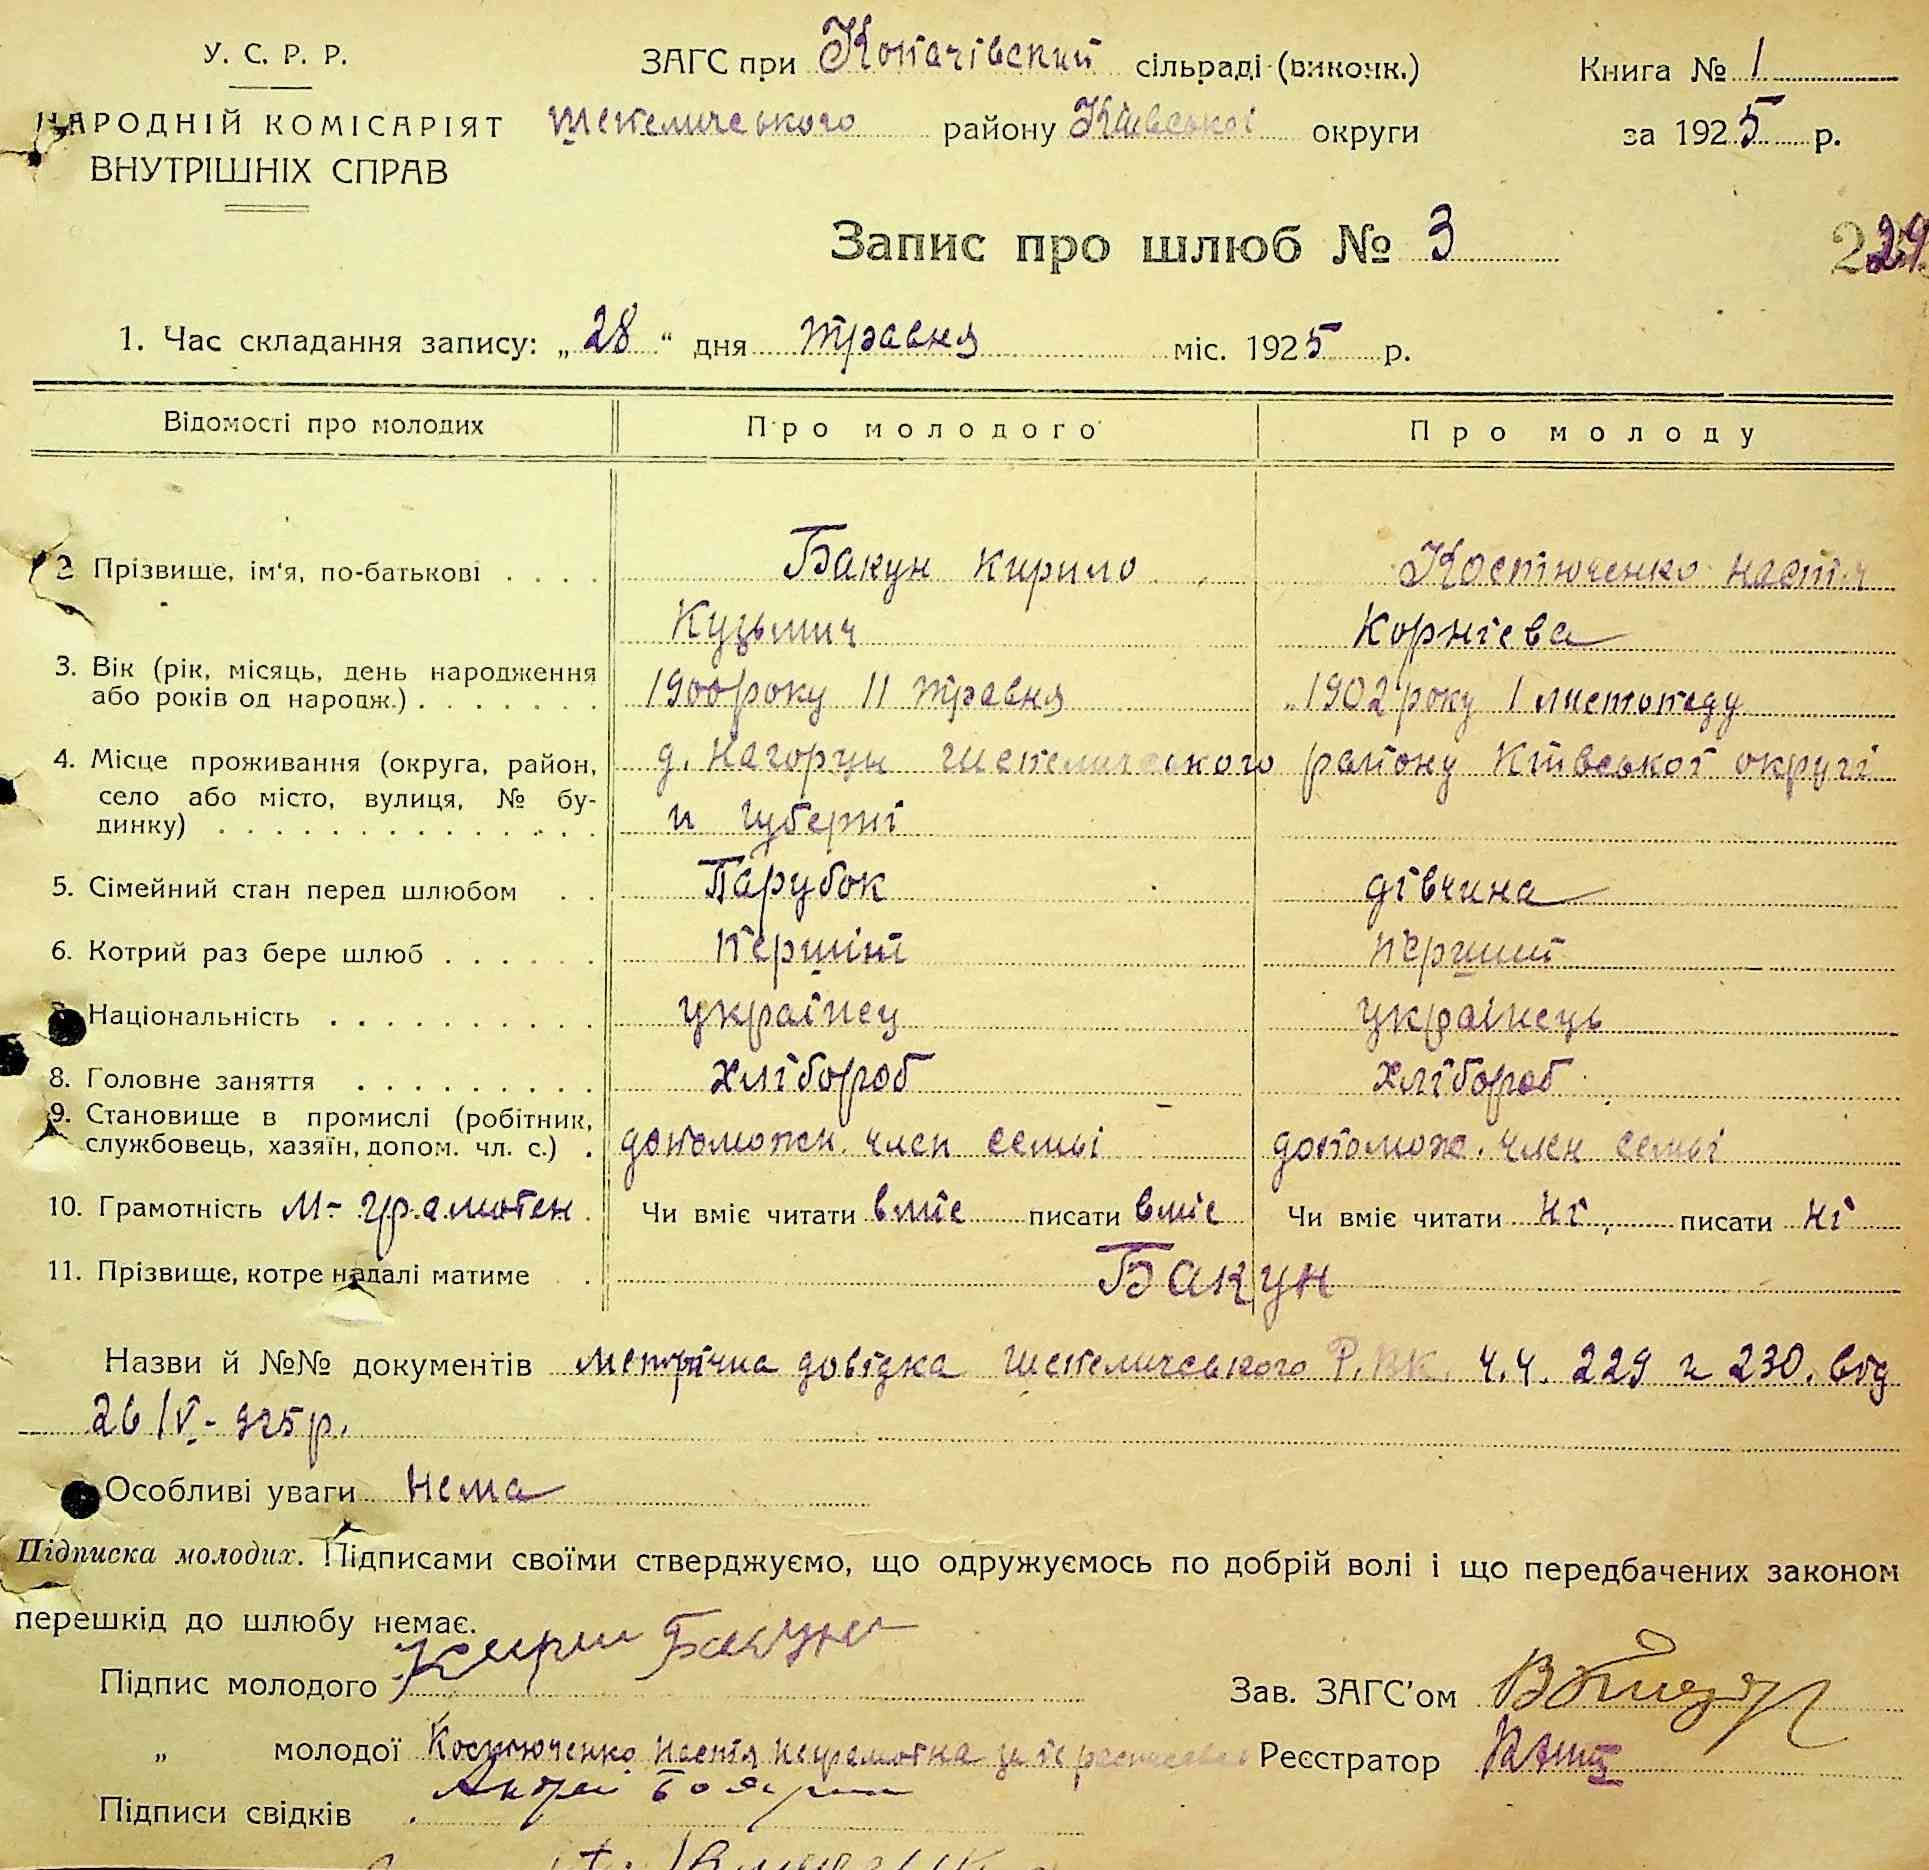 У. С. Р. Р.
НАРОДНІЙ КОМІСАРІЯТ
ВНУТРІШНІХ СПРАВ
ЗАГС при Копачівский сільраді (виконк.)
Шепеличського району Київської округи
Книга № 1
за 1925 р.
Запис про шлюб № 3
229
1. Час складання запису: „28“ дня травня міс. 1925 р.
Відомості про молодих Про молодого Про молоду
2 Прізвище, ім'я, по-батькові Бакун Кирило Костюченко Настя
Кузьмич Корнієва
3. Вік (рік, місяць, день народження або років од народж.) 1900 року 11 травня 1902 року 1 листопаду
4. Місце проживання (округа, район, село або місто, вулиця, № будинку) д. Нагорцы Шепеличського району Київської округі
и губерні
5. Сімейний стан перед шлюбом Парубок дівчина
6. Котрий раз бере шлюб першій перший
Національність українец українець
8. Головне заняття хлібороб хлібороб
9. Становище в промислі (робітник, службовець, хазяїн, допом. чл. с.) допоможн. член семьі допомож. член семьі
10. Грамотність м-грамотен Чи вміє читати вміє писати вміє Чи вміє читати ні писати ні
11. Прізвище, котре надалі матиме Бакун
Назви й №№ документів метрична довідка Шепеличського Р.В.К. ч.ч. 229 и 230. від
26/V-925 р.
Особливі уваги нема
Підписка молодих. Підписами своїми стверджуємо, що одружуємось по добрій волі і що передбачених законом
перешкід до шлюбу немає.
Підпис молодого Бакун
Зав. ЗАГС'ом
„ молодої Костюченко Настя неграмотна
Реєстратор
Підписи свідків Андрей